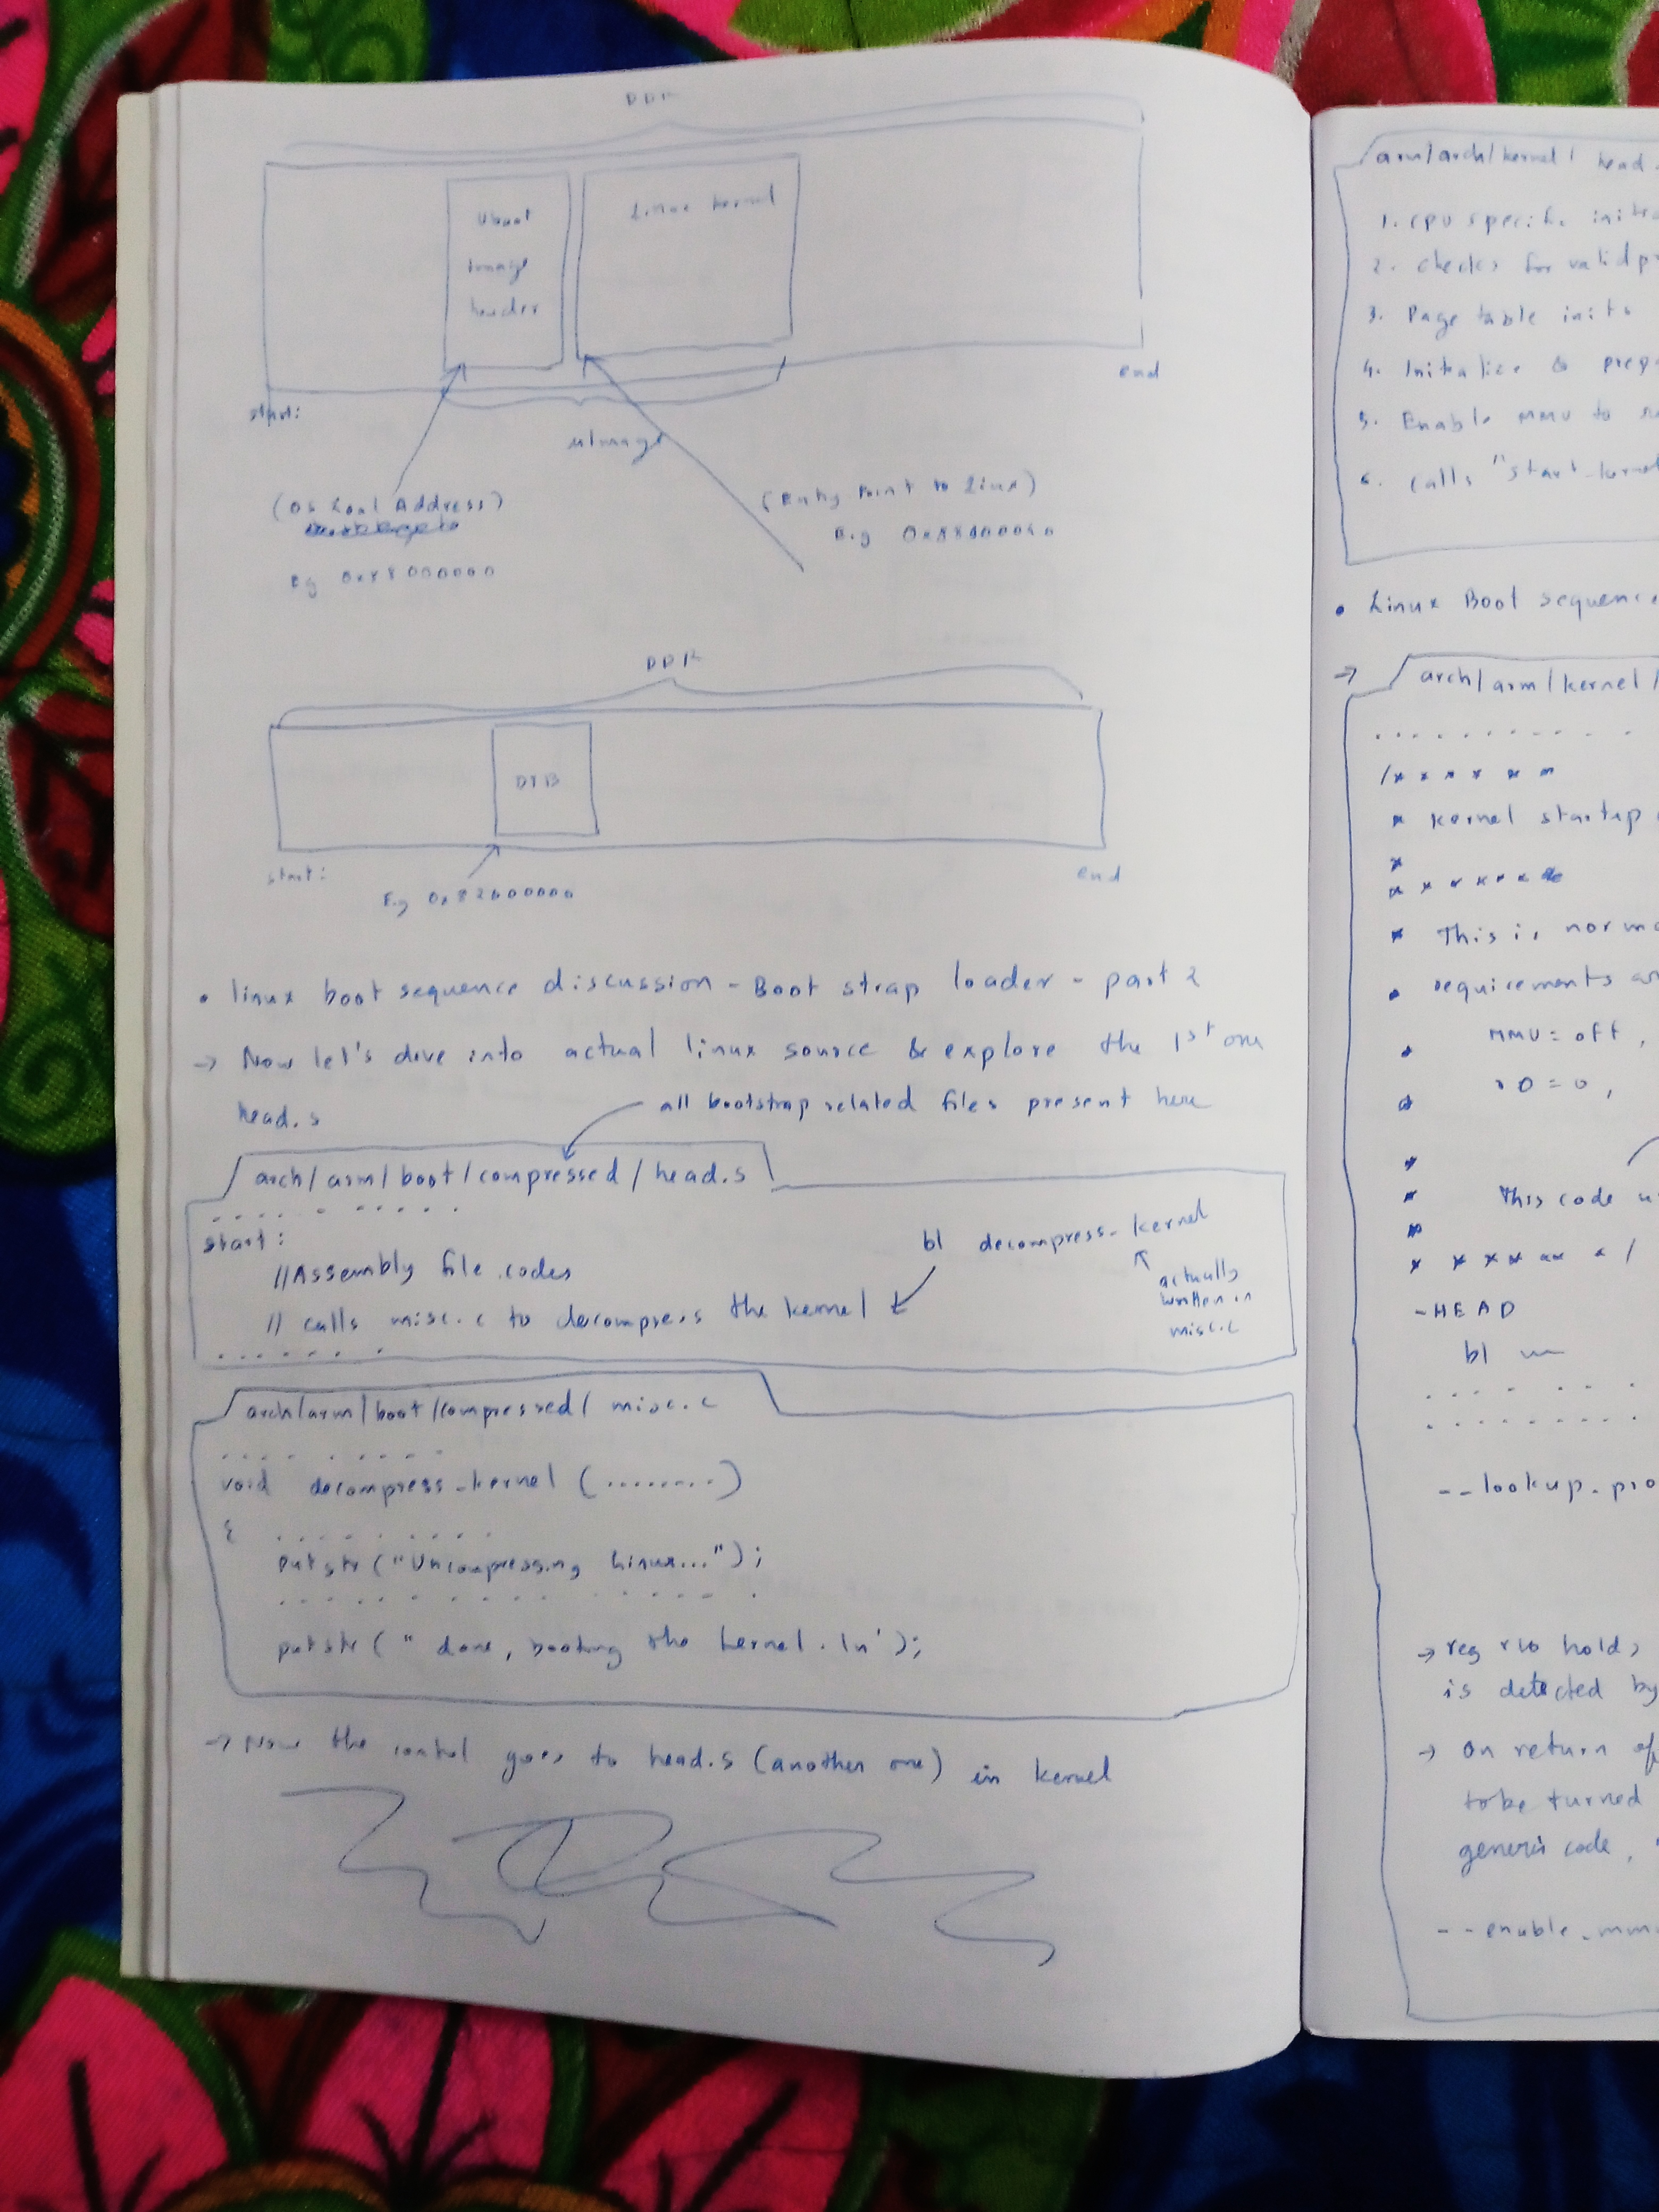 DDR
Uboot
Image
header
Linux kernel
start:
end
uImage
(OS Load Address)
(Entry Point to Linux)
E.g 0x88000040
Eg 0x88000000
DDR
DTB
start:
end
E.g 0x82000000
• linux boot sequence discussion - Boot strap loader - part 2
→ Now let's dive into actual linux source & explore the 1st one
head.s
all bootstrap related files present here
arch/arm/boot/compressed/head.s
start:
bl decompress_kernel
//Assembly file codes
actually
written in
misc.c
// calls misc.c to decompress the kernel
arch/arm/boot/compressed/misc.c
void decompress_kernel (........)
{
putstr("Uncompressing Linux...");
putstr(" done, booting the kernel.\n");
→ Now the control goes to head.s (another one) in kernel
arm/arch/kernel/ head.
1. CPU specific
2. checks for valid
3. Page table inits
4. Initialize &
5. Enable MMU to
6. calls "start_kernel
• Linux Boot sequence
→ arch/arm/kernel/
/* * * * * *
* kernel startup
*
* * * * * * *
* This is
* requirements
* MMU = off,
* r0 = 0,
*
* This code
*
* * * * * * * /
-HEAD
bl
--lookup_
→ reg r10 holds
is detected by
→ on return
to be turned
generic code,
--enable_